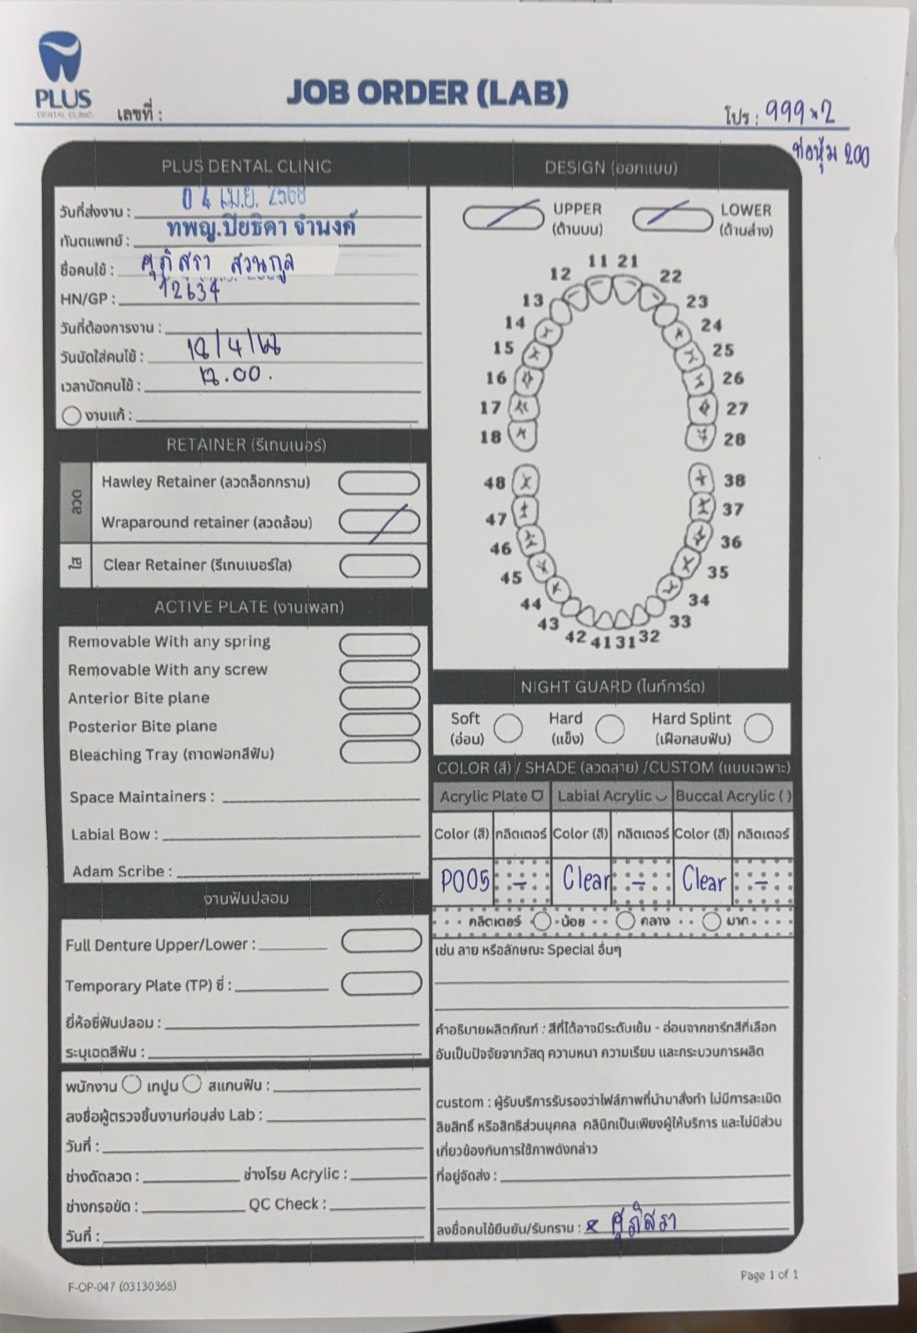 PLUS
DENTAL CLINIC
เลขที่ :
JOB ORDER (LAB)
โปร : 999×2
ท่อหุ้ม 200
PLUS DENTAL CLINIC
วันที่ส่งงาน : 04 เม.ย. 2568
ทันตแพทย์ : ทพญ.ปิยธิดา จำนงค์
ชื่อคนไข้ : ศุภิสรา สวนกูล
HN/GP : 12634
วันที่ต้องการงาน :
วันนัดใส่คนไข้ : 18/4/68
เวลานัดคนไข้ : 12.00.
งานแก้ :
RETAINER (รีเทนเนอร์)
ลวด
Hawley Retainer (ลวดล็อกกราม)
Wraparound retainer (ลวดล้อม)
ใส
Clear Retainer (รีเทนเนอร์ใส)
ACTIVE PLATE (งานเพลท)
Removable With any spring
Removable With any screw
Anterior Bite plane
Posterior Bite plane
Bleaching Tray (ถาดฟอกสีฟัน)
Space Maintainers :
Labial Bow :
Adam Scribe :
งานฟันปลอม
Full Denture Upper/Lower :
Temporary Plate (TP) ซี่ :
ยี่ห้อซี่ฟันปลอม :
ระบุเฉดสีฟัน :
พนักงาน เทปูน สแกนฟัน :
ลงชื่อผู้ตรวจชิ้นงานก่อนส่ง Lab :
วันที่ :
ช่างดัดลวด : ช่างโรย Acrylic :
ช่างกรอขัด : QC Check :
วันที่ :
DESIGN (ออกแบบ)
UPPER LOWER
(ด้านบน) (ด้านล่าง)
11 21
12 22
13 23
14 24
15 25
16 26
17 27
18 28
48 38
47 37
46 36
45 35
44 34
43 33
42 41 31 32
NIGHT GUARD (ไนท์การ์ด)
Soft Hard Hard Splint
(อ่อน) (แข็ง) (เฝือกสบฟัน)
COLOR (สี) / SHADE (ลวดลาย) /CUSTOM (แบบเฉพาะ)
Acrylic Plate Labial Acrylic Buccal Acrylic ( )
Color (สี) กลิตเตอร์ Color (สี) กลิตเตอร์ Color (สี) กลิตเตอร์
P005 - Clear - Clear -
กลิตเตอร์ น้อย กลาง มาก
เช่น ลาย หรือลักษณะ Special อื่นๆ
คำอธิบายผลิตภัณฑ์ : สีที่ได้อาจมีระดับเข้ม - อ่อนจากชาร์ทสีที่เลือก
อันเป็นปัจจัยจากวัสดุ ความหนา ความเรียบ และกระบวนการผลิต
custom : ผู้รับบริการรับรองว่าไฟล์ภาพที่นำมาสั่งทำ ไม่มีการละเมิด
ลิขสิทธิ์ หรือสิทธิส่วนบุคคล คลินิกเป็นเพียงผู้ให้บริการ และไม่มีส่วน
เกี่ยวข้องกับการใช้ภาพดังกล่าว
ที่อยู่จัดส่ง :
ลงชื่อคนไข้ยืนยัน/รับทราบ : x ศุภิสรา
F-OP-047 (03130368)
Page 1 of 1